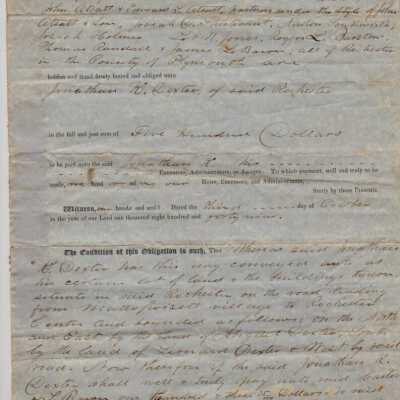 John Atsatt & Edward L. Atsatt, partners under the Style of John
Atsatt & Son, Josiah
Josiah Holmes Jr. Barstow,
Thomas Randall & James L. Baron, all of Rochester
in the County of Plymouth are
holden and stand firmly bound and obliged unto
Jonathan K. Dexter, of said Rochester
in the full and just sum of Five hundred Dollars
to be paid unto the said Jonathan K. his
Executors, Administrators, or Assigns. To which payment, well and truly to be
made, we bind our Heirs, Executors, and Administrators,
firmly by these Presents.
Witness, our hands and seals Dated the third day of October
in the year of our Lord one thousand eight hundred and forty nine.
The Condition of this Obligation is such, That Whereas said Jonathan
K. Dexter has this day conveyed unto us
a certain lot of land & the buildings thereon
situate in said Rochester on the road leading
from Mattapoisett village to Rochester
Center and bounded as follows, on the North
and East by the land of Dexter, South
by the land of Leonard Dexter & West by said
road. Now therefore if the said Jonathan K.
Dexter shall well & truly pay unto said
hundred & Dollars in said